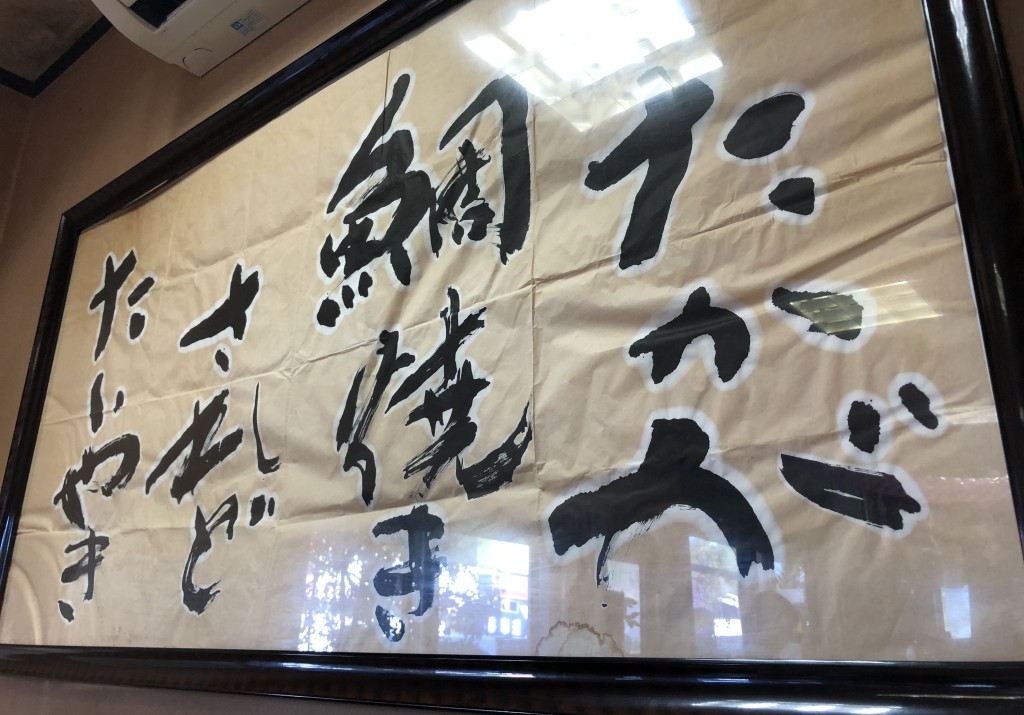 たかが
鯛焼き
されど
たいやき